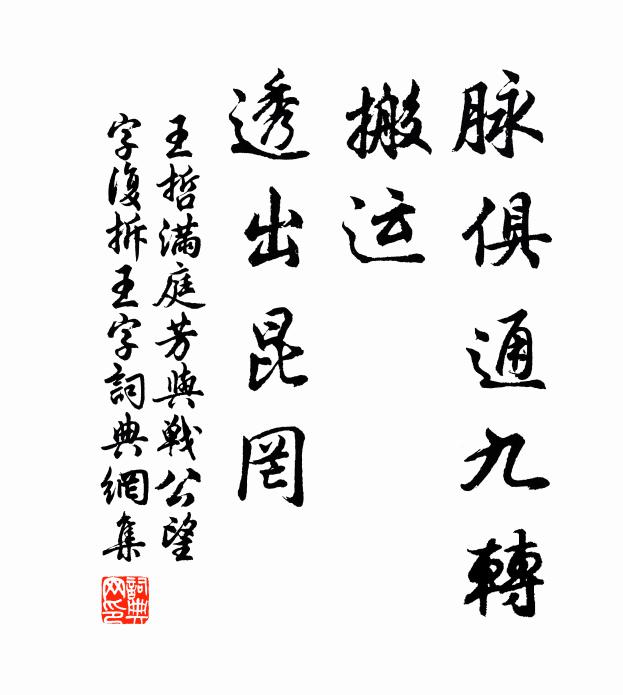 脉俱通九轉
搬运
透出昆罔
王哲滿庭芳與戰公望
字復拆王字詞典網集
詞典
网印